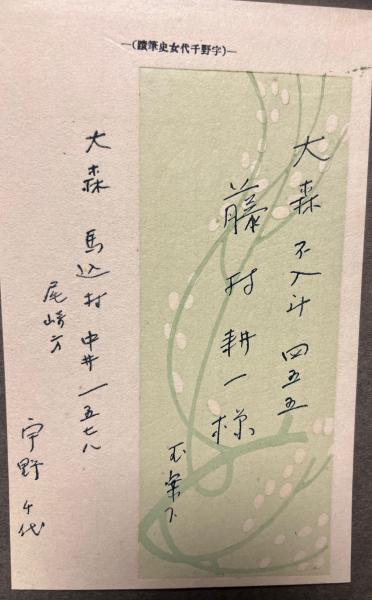 —(宇野千代女史筆蹟)—
大森 不入斗 四五五
藤村耕一様
玉案下
大森 馬込村 中井 一五七八
尾崎方
宇野千代